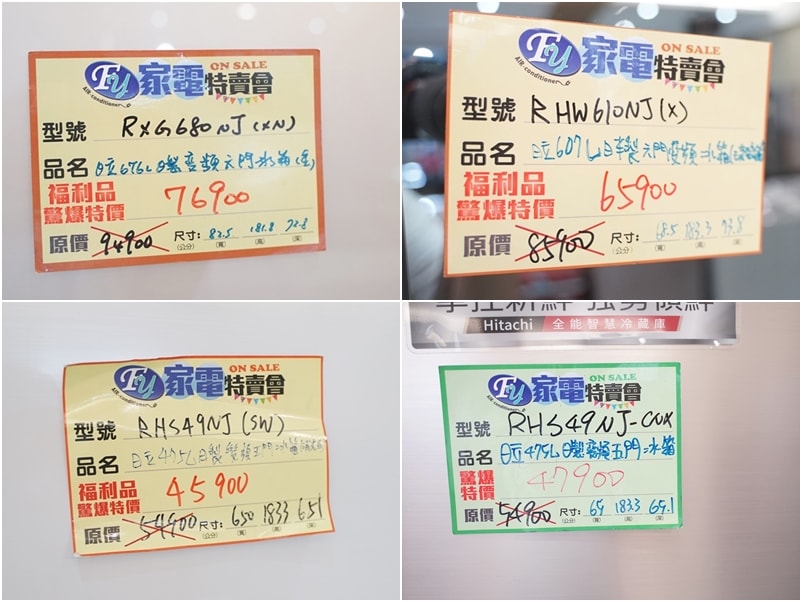 FY 家電特賣會 ON SALE
AIR-conditioner
型號 RXG680NJ(XN)
品名 日立676L日製變頻六門冰箱
福利品
驚爆特價 76900
原價 94900 尺寸: 82.5 181.8 72.8
(公分) (寬) (高) (深)
FY 家電特賣會 ON SALE
AIR-conditioner
型號 RHW610NJ(X)
品名 日立607L日本製六門變頻冰箱
福利品
驚爆特價 65900
原價 85900 尺寸: 68.5 183.3 73.8
(公分) (寬) (高) (深)
FY 家電特賣會 ON SALE
AIR-conditioner
型號 RHS49NJ(SW)
品名 日立475L日製變頻五門冰箱
福利品
驚爆特價 45900
原價 54900 尺寸: 650 1833 651
(公分) (寬) (高) (深)
掌控新鮮 強勢領鮮
Hitachi 全能智慧冷藏庫
FY 家電特賣會 ON SALE
AIR-conditioner
型號 RHS49NJ-CNX
品名 日立475L日製變頻五門冰箱
驚爆
特價 47900
原價 54900 尺寸: 65 183.3 65.1
(公分) (寬) (高) (深)